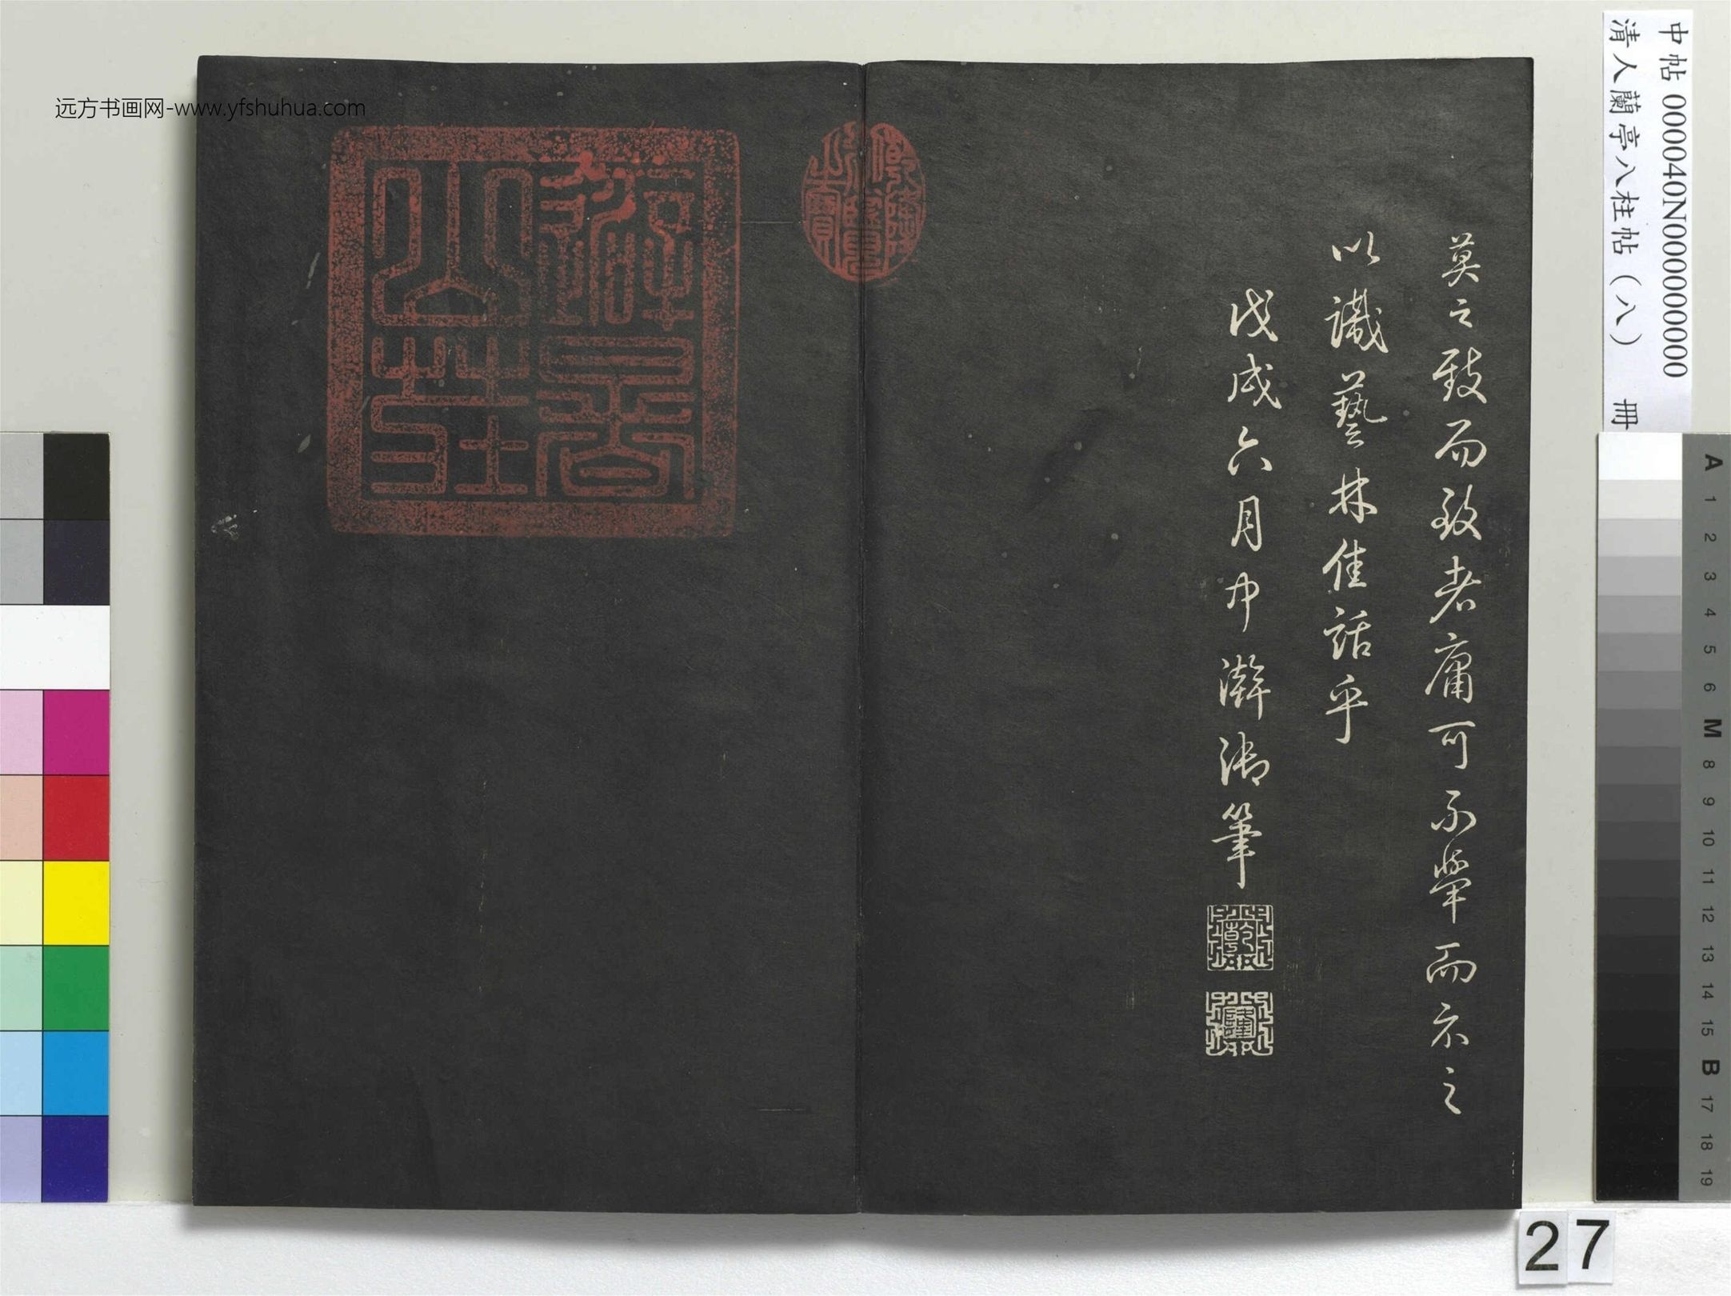 远方书画网-www.yfshuhua.com
中帖 000040N000000000
清人蘭亭八柱帖（八） 冊
莫之致而致者庸可不舉而示之
以識藝林佳話乎
戊戌六月中澣御筆
乾
隆
乾隆御覽之寶
避暑山莊
A
1
2
3
4
5
6
M
8
9
10
11
12
13
14
15
B
17
18
19
27